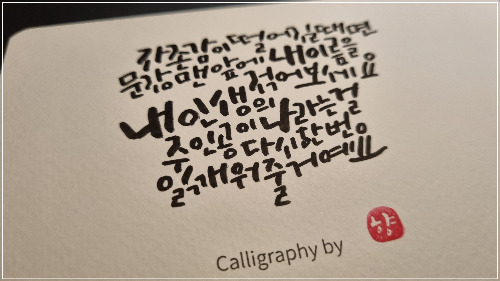 자존감이 떨어질때면
문장 맨 앞에 내 이름을
적어보세요
내 인생의
주인공이 나라는걸
다시 한 번
일깨워줄거예요
Calligraphy by